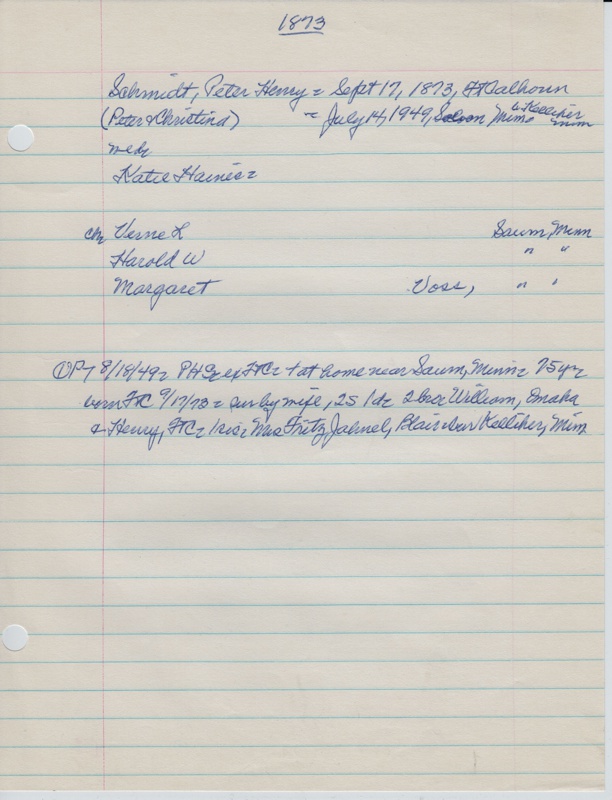 1873
Schmidt, Peter Henry = Sept 17, 1873, Ft Calhoun
(Peter & Christina) = July 14, 1949, Minn b. Kelliher Minn
wed
Katie Haines =
ch Verne L Saum, Minn
Harold W " "
Margaret Voss, " "
8/18/49 = PHS ex FtC = + at home near Saum, Minn = 75 yr
born FtC 9/17/73 = sur by wife, 2S 1d = 2 bro William, Omaha
& Henry, FtC = 1 sis = Mrs Fritz Jahnel, Blair = bur Kelliher, Minn